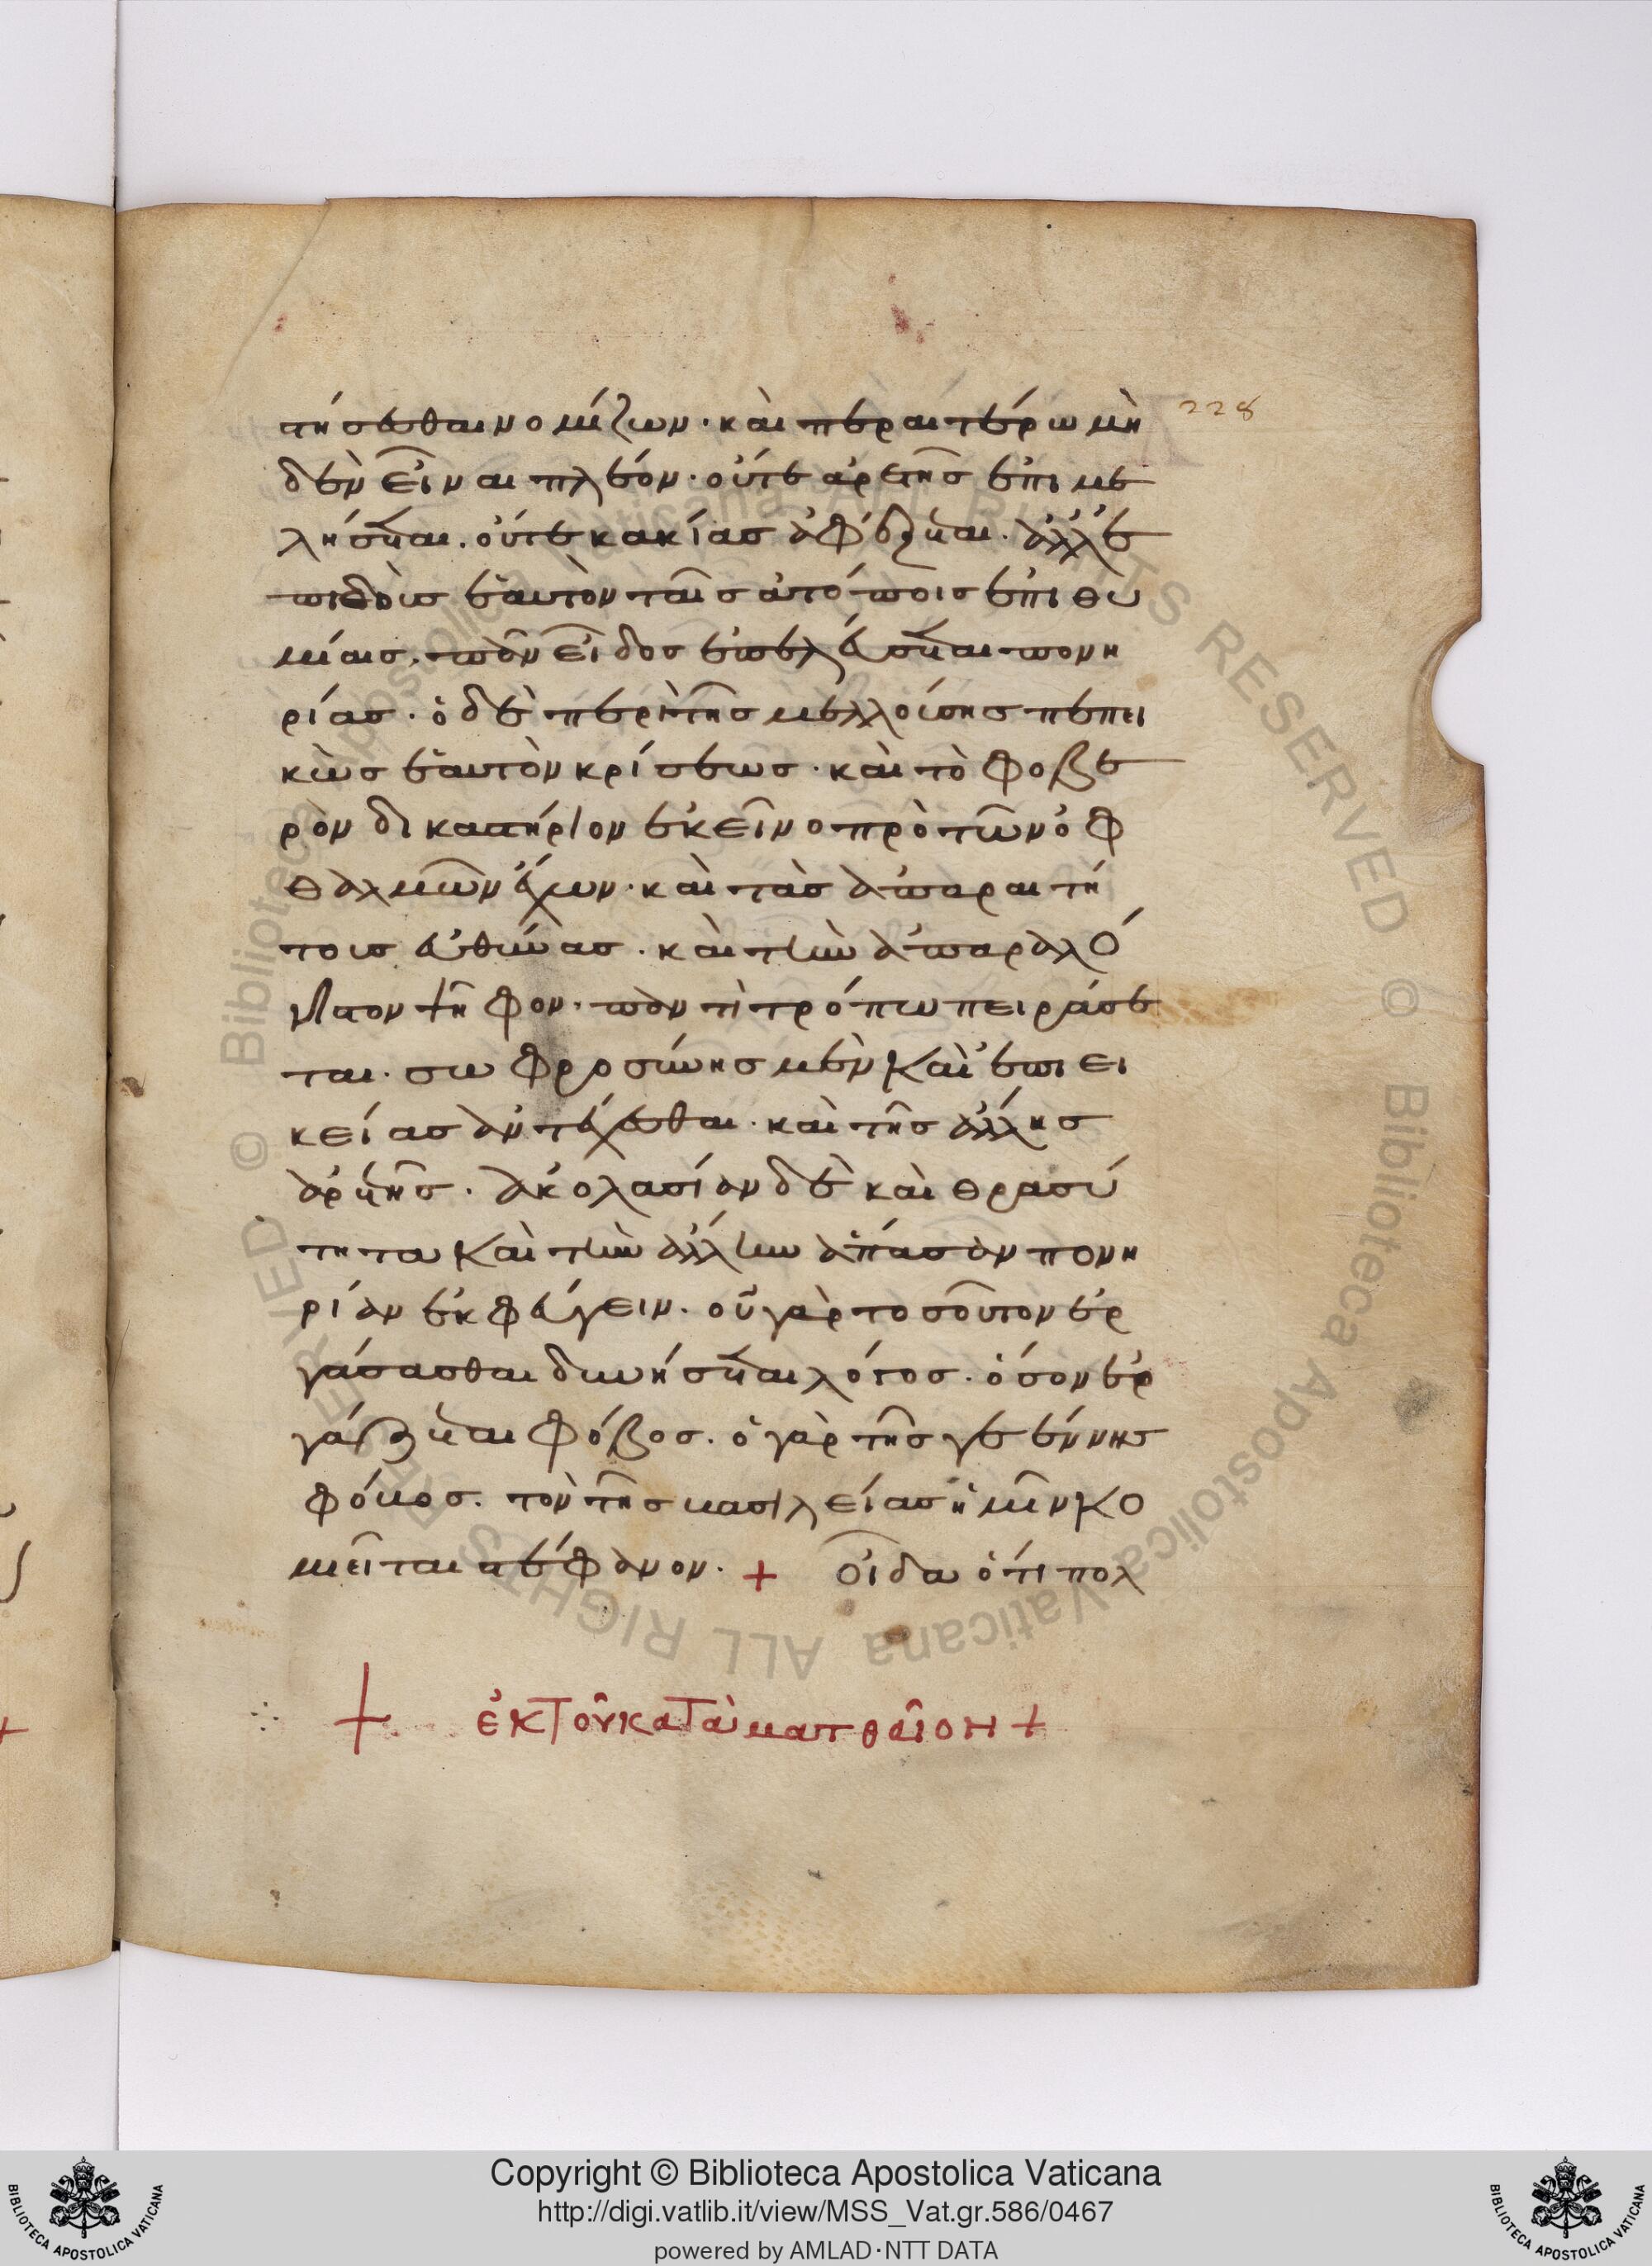 228
στήσεσθαι νομίζων· καὶ περαιτέρω μη
δὲν εἶναι πλέον· οὔτε ἀρετῆς ἐπιμε
λήσεται. οὔτε κακίας ἀφέξεται. ἀλλ' ἐ
πιδοὺς ἑαυτὸν ταῖς ἀτόποις ἐπιθυ
μίαις. πᾶν εἶδος ἐπελεύσεται πονη
ρίας· ὁ δὲ περὶ τῆς μελλούσης πεπει
κὼς ἑαυτὸν κρίσεως· καὶ τὸ φοβε
ρὸν δικαστήριον ἐκεῖνο πρὸ τῶν ὀφ
θαλμῶν ἔχων· καὶ τὰς ἀπαραιτή
τους εὐθύνας. καὶ τὴν ἀπαραλό
γιστον ψῆφον. παντὶ τρόπω πειράσε
ται. σωφροσύνης μὲν καὶ ἐπιει
κείας ἀντέχεσθαι. καὶ τῆς ἄλλης
ἀρετῆς. ἀκολασίαν δὲ καὶ θρασύ
τητα καὶ τὴν ἄλλην ἅπασαν πονη
ρίαν ἐκφεύγειν. οὐ γὰρ τοσοῦτον ἐρ
γάσασθαι δυνήσεται λόγος. ὅσον ἐρ
γάζεται φόβος. ὁ γὰρ τῆς γεέννης
φόβος. τὸν τῆς βασιλείας ἡμῖν κο
μεῖται στέφανον. + Οἶδα ὅτι πολ
+ ἐκ τοῦ κατὰ ματθαῖον +
Copyright © Biblioteca Apostolica Vaticana
http://digi.vatlib.it/view/MSS_Vat.gr.586/0467
powered by AMLAD·NTT DATA
BIBLIOTECA APOSTOLICA VATICANA
BIBLIOTECA APOSTOLICA VATICANA
© Biblioteca Apostolica Vaticana ALL RIGHTS RESERVED © Biblioteca Apostolica Vaticana ALL RIGHTS RESERVED